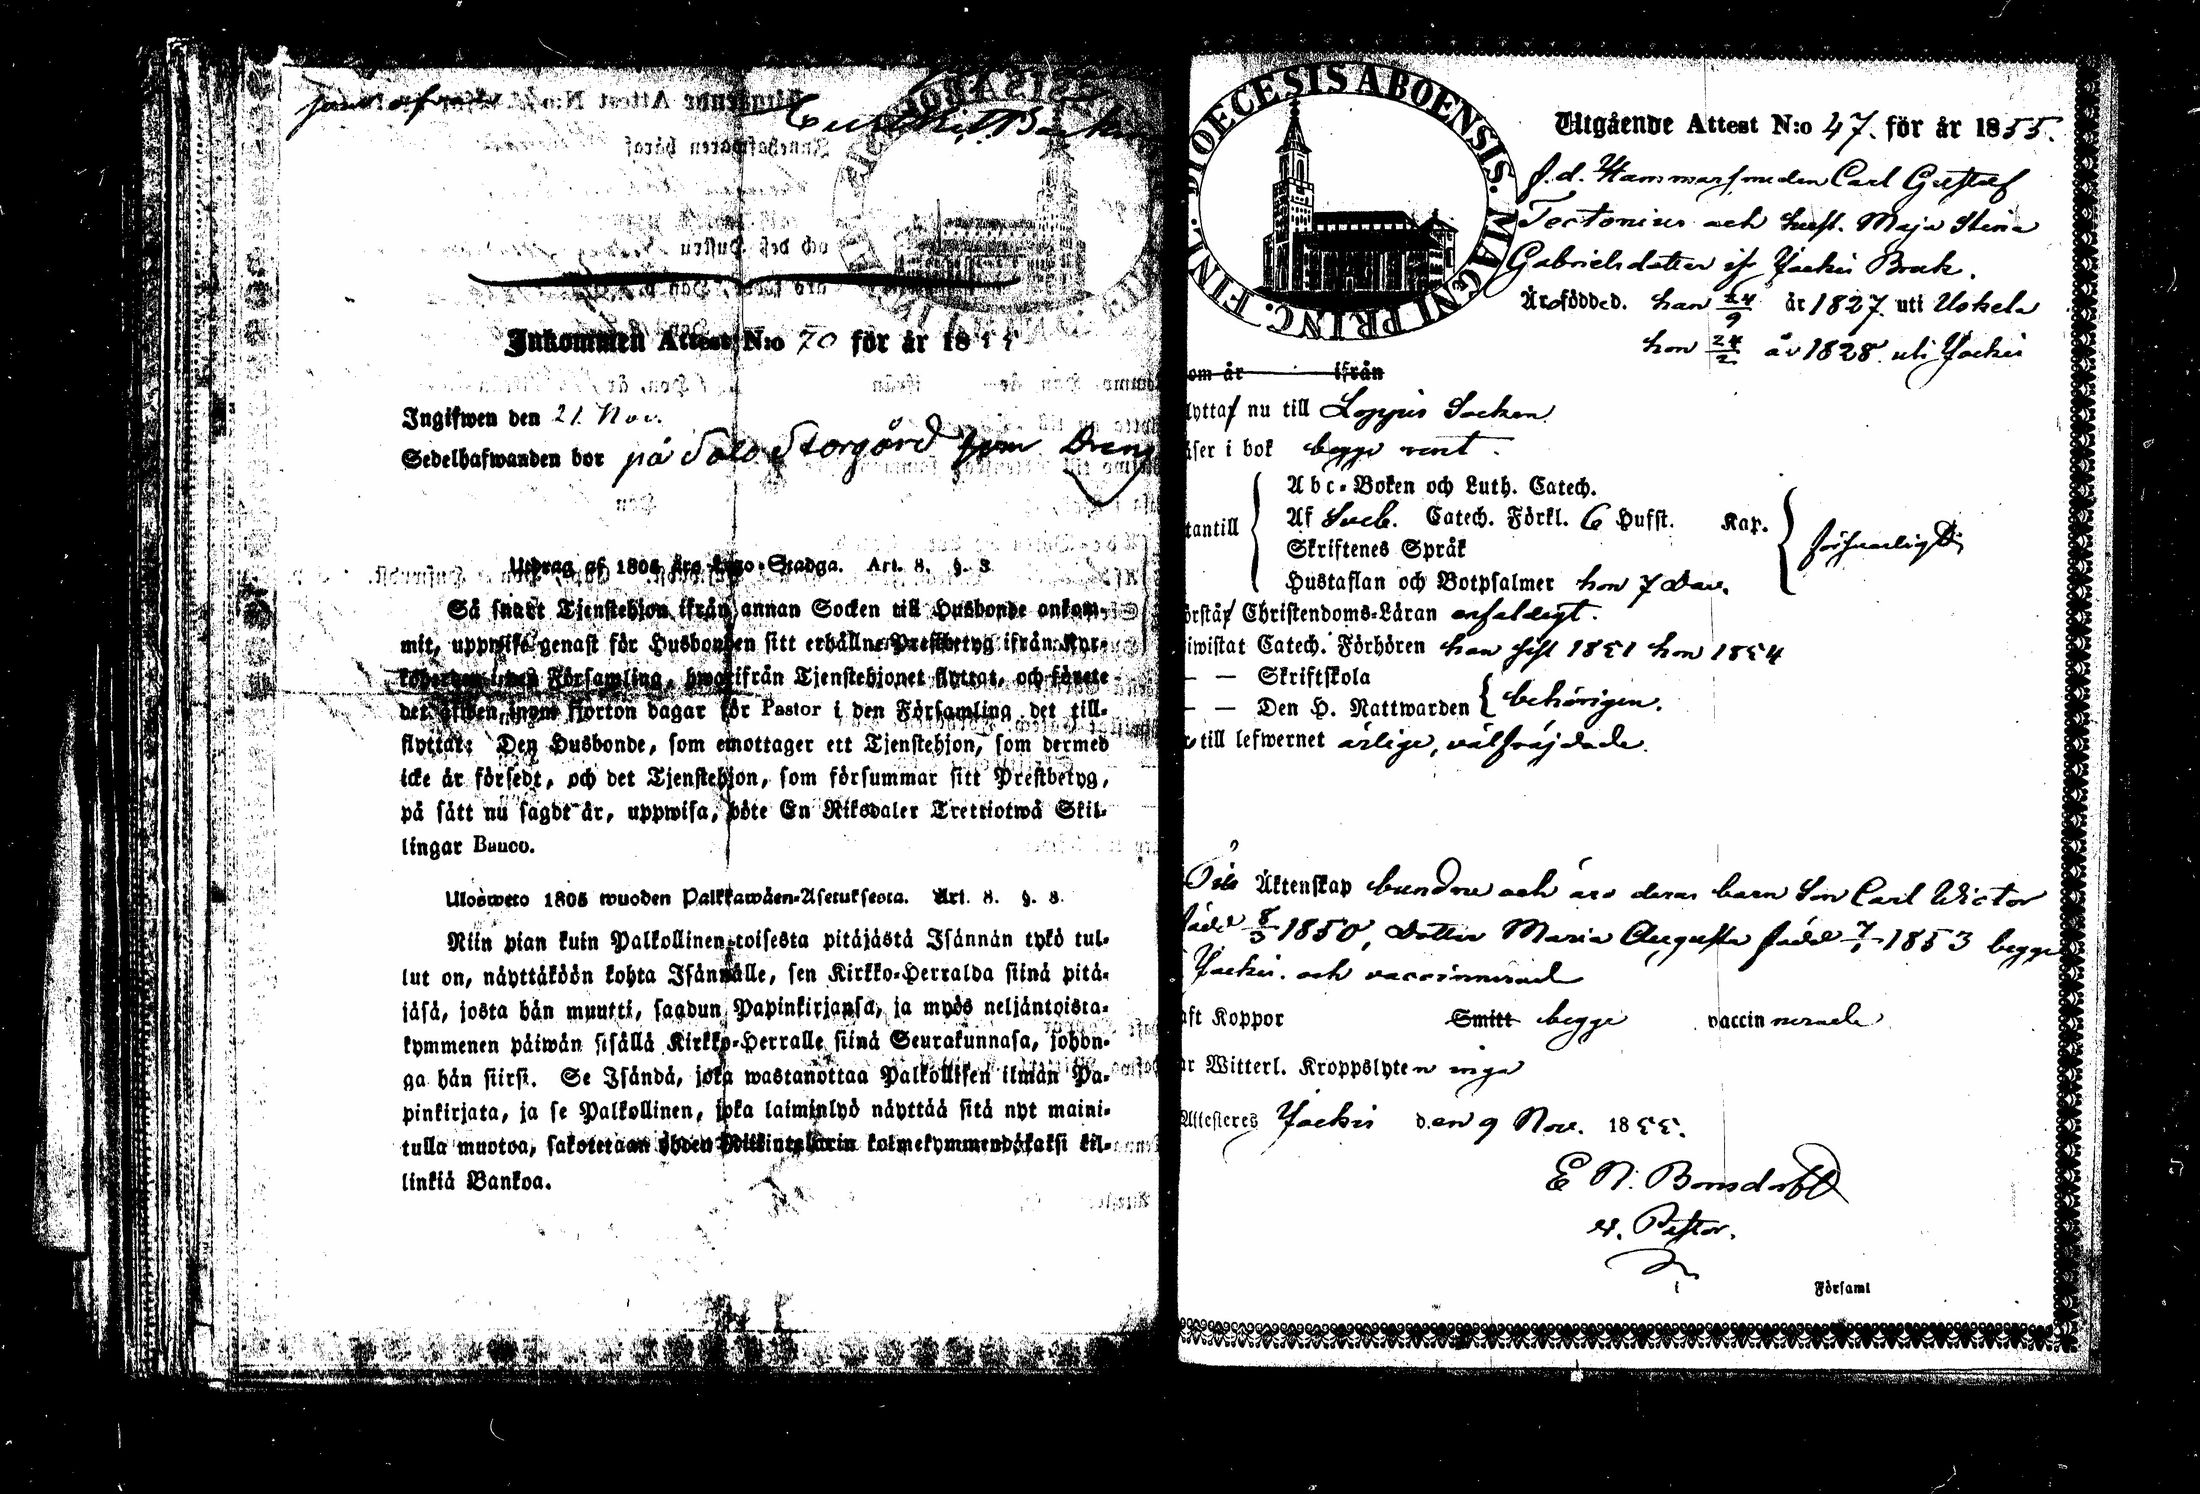 Inkommen Attest N:o 70 för år 1855
Ingifwen den 21. Nov.
Sedelhafwanden bor på Storgård som Dreng
Utdrag af 1805 års Lego-Stadga. Art. 8. §. 8.
Så snart Tjenstehjon ifrån annan Socken till Husbonde ankom-
mit, uppwise genast för Husbonden sitt erhållne Prestbetyg ifrån Kyr-
koherden i den Församling, hwarifrån Tjenstehjonet flyttat, och förete
det äfwen inom fjorton dagar för Pastor i den Församling det till-
flyttat: Den Husbonde, som emottager ett Tjenstehjon, som dermed
icke är försedt, och det Tjenstehjon, som försummar sitt Prestbetyg,
på sätt nu sagdt är, uppwisa, böte En Riksdaler Trettiotwå Skil-
lingar Banco.
Ulosweto 1805 wuoden Palkkawäen-Asetuksesta. Art. 8. §. 8.
Niin pian kuin Palkollinen toisesta pitäjästä Isännän tykö tul-
lut on, näyttäköön kohta Isännälle, sen Kirkko-Herralda siinä pitä-
jäsä, josta hän muutti, saadun Papinkirjansa, ja myös neljäntoista-
kymmenen päiwän sisällä Kirkko-Herralle siinä Seurakunnasa, johon-
ga hän siirsi. Se Isändä, joka wastanottaa Palkollisen ilman Pa-
pinkirjata, ja se Palkollinen, joka laiminlyö näyttää sitä nyt maini-
tulla muotoa, sakotetaan yhden Riikintalarin kolmekymmendäkaksi kil-
linkiä Bankoa.
DIOECESIS ABOENSIS. MAGNI PRINC. FINL.
Utgående Attest N:o 47. för år 1855.
f.d. Hammarsmeden Carl Gustaf
Tectonius och hust. Maja Stina
Gabrielsdotter if Jockis Bruk.
Äro födde d. han 24/9 år 1827 uti Uskela
hon 24/2 år 1828 uti Jockis
om år ifrån
lyttaf nu till Loppis Socken
äser i bok begge rent.
tantill
Abc-Boken och Luth. Catech.
Af Sveb. Catech. Förkl. 6 Hufst. Kap.
Skriftenes Språk
Hustaflan och Botpsalmer hon 7 Dav.
försvarligt
örstå Christendoms-Läran enfaldigt.
iwistat Catech. Förhören han sist 1851 hon 1854
— — Skriftskola
— — Den H. Nattwarden behörigen.
till lefwernet ärlige, välfräjdade.
Till Äktenskap bundne och äro deras barn Son Carl Victor
född 8/3 1850, Dotter Maria Augusta född 7/1 1853 begge
Jockis. och vaccinnerad
aft Koppor Smitt begge vaccinnerade
ar Witterl. Kroppslyten inga
Attesteres Jockis den 9 Nov. 1855.
E N. Bonsdorff
v. Pastor.
i Församl